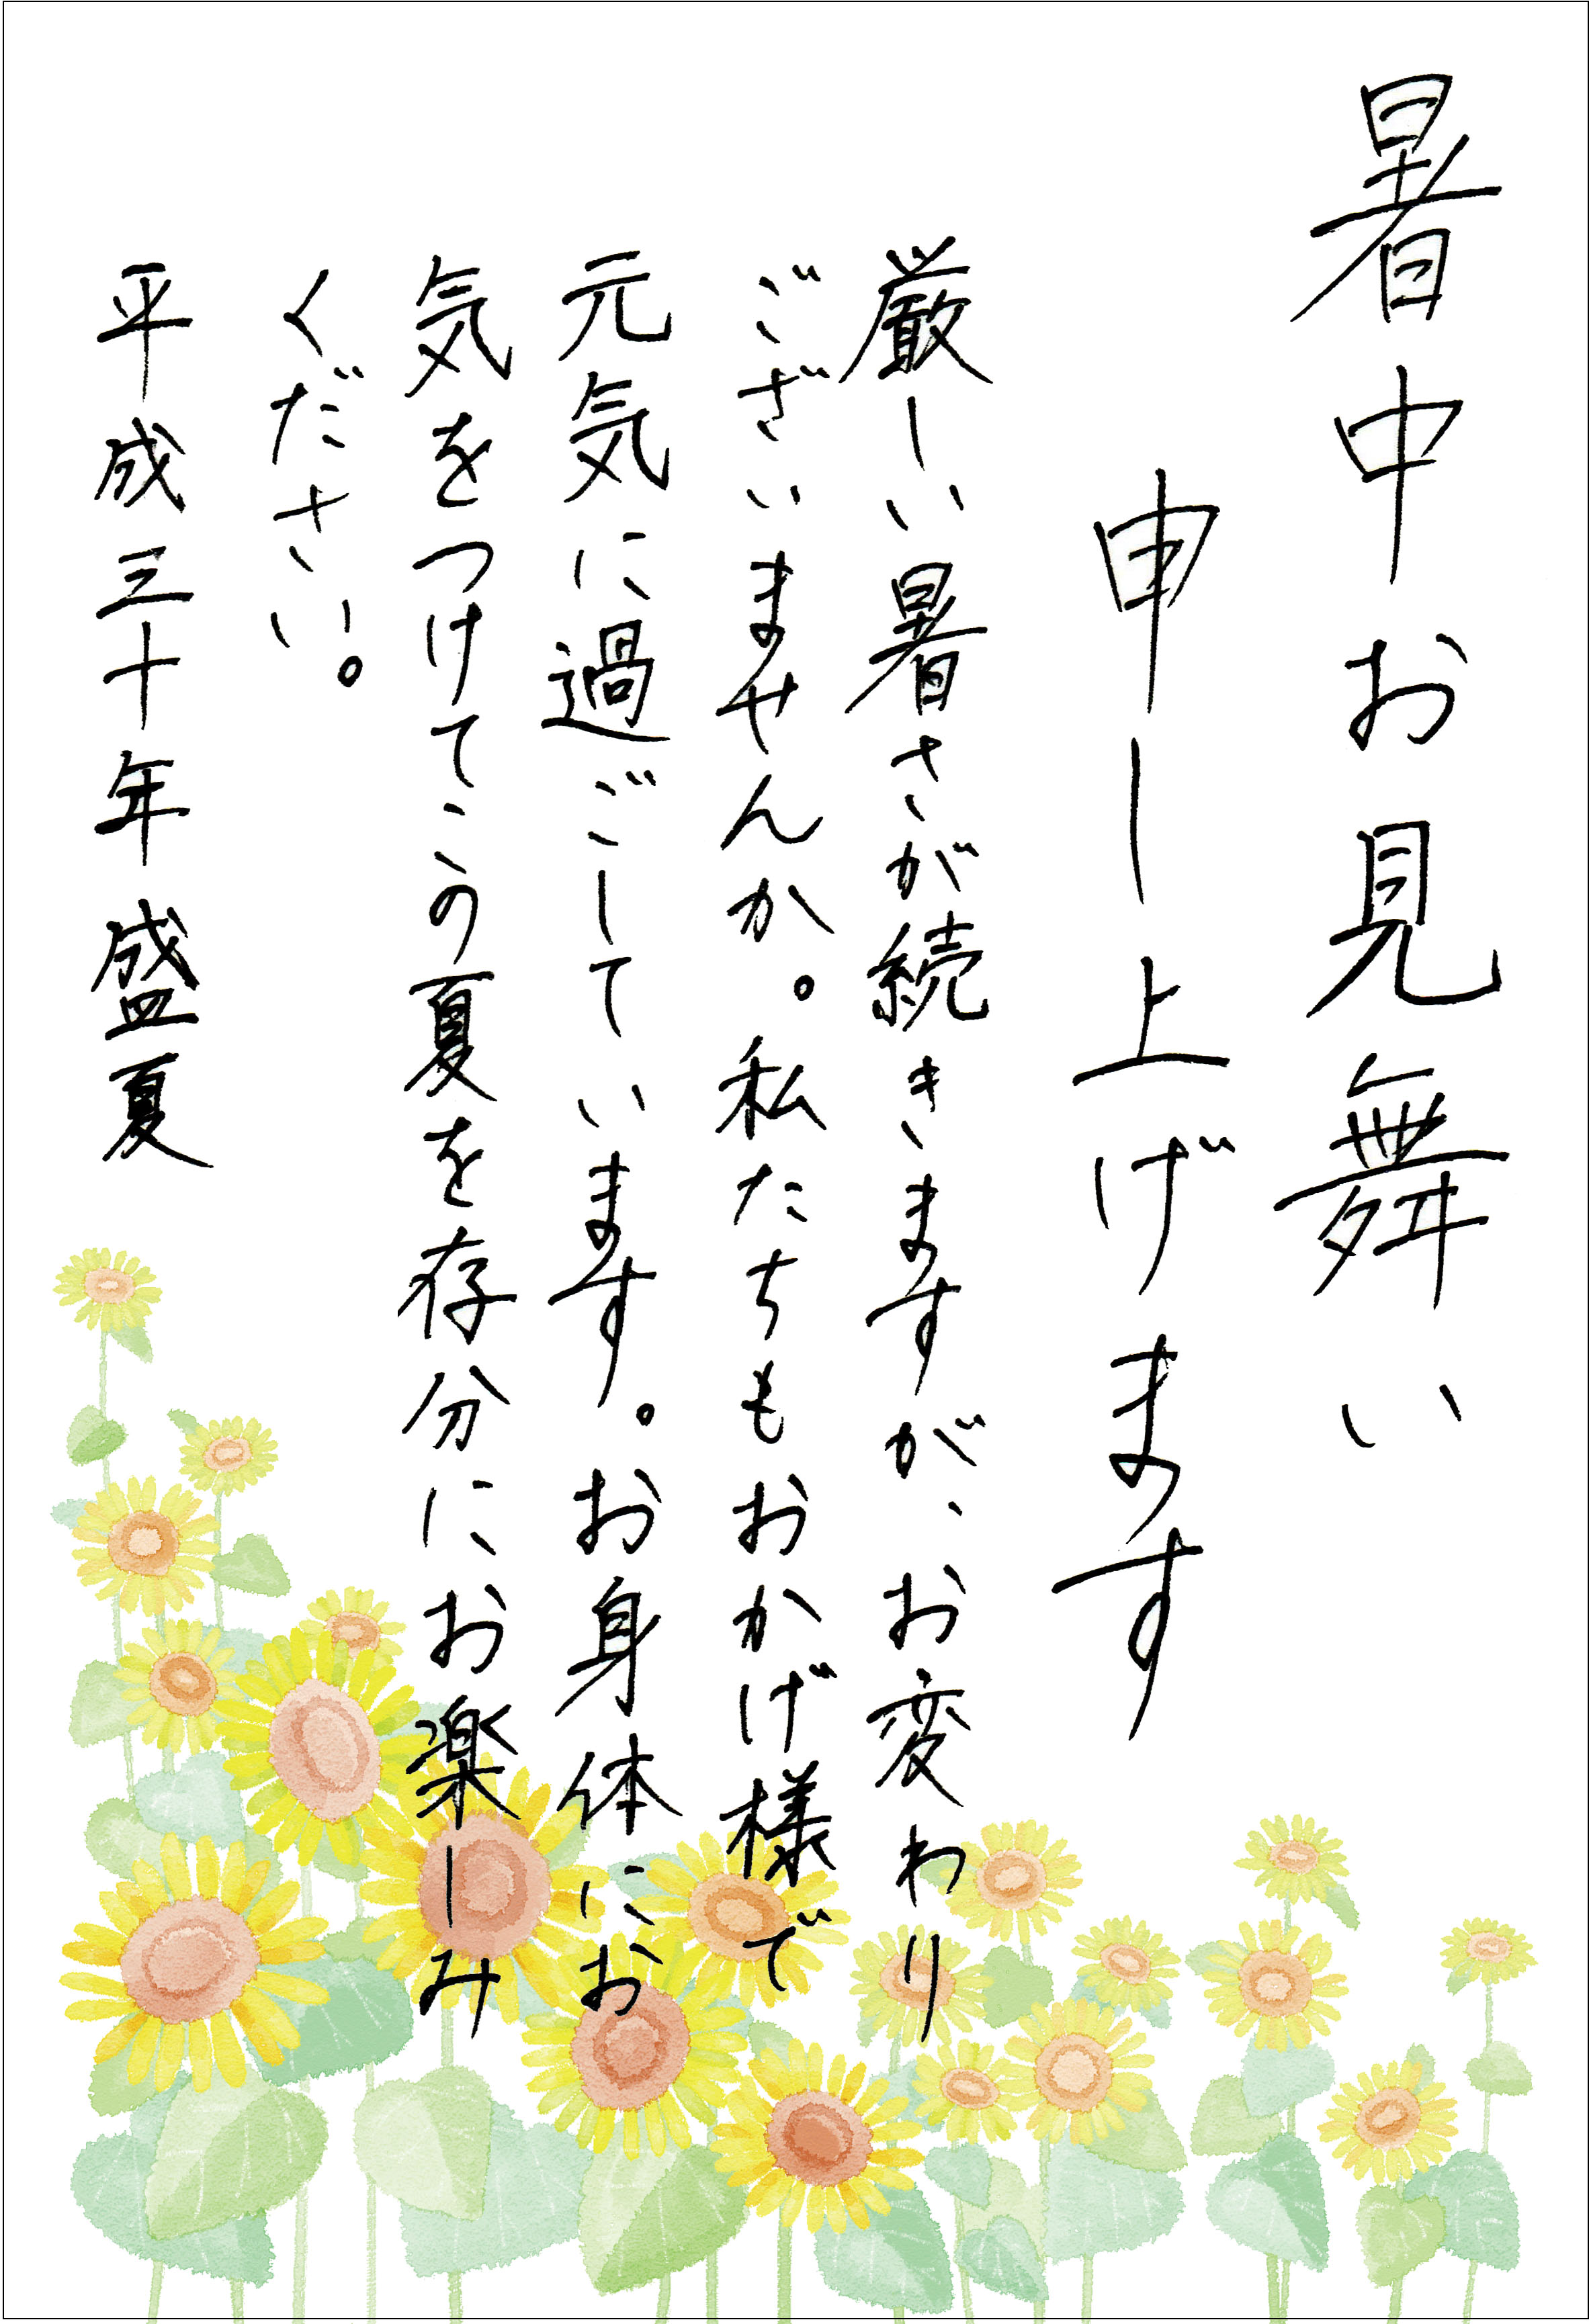 暑中お見舞い
申し上げます
厳しい暑さが続きますが、お変わり
ございませんか。私たちもおかげ様で
元気に過ごしています。お身体にお
気をつけてこの夏を存分にお楽しみ
ください。
平成三十年 盛夏